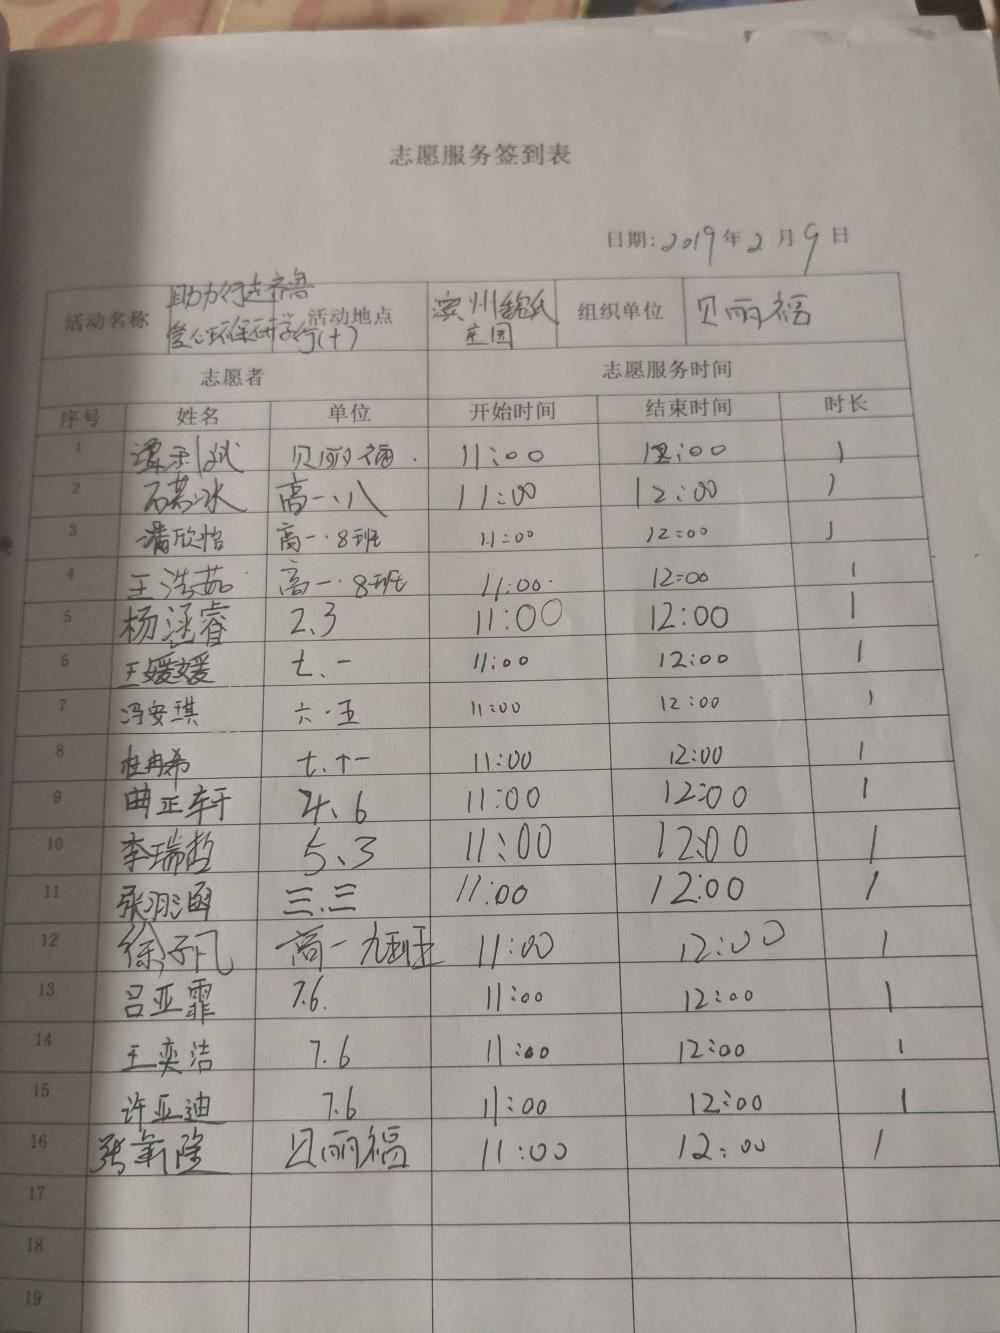 志愿服务签到表
日期:2019年2月9日
活动名称 助力行走齐鲁 爱心环保研学行(十) 活动地点 滨州魏氏庄园 组织单位 贝丽福
志愿者 志愿服务时间
序号 姓名 单位 开始时间 结束时间 时长
1 贝丽福. 11:00 12:00 1
2 石若冰 高一.八 11:00 12:00 1
3 欣怡 高一.8班 11:00 12:00 1
4 王浩茹 高一.8班 11:00 12:00 1
5 杨涵睿 2.3 11:00 12:00 1
6 王媛媛 七.一 11:00 12:00 1
7 冯安琪 六.五 11:00 12:00 1
8 杜冉希 七.十一 11:00 12:00 1
9 曲正轩 4.6 11:00 12:00 1
10 李瑞哲 5.3 11:00 12:00 1
11 张羽涵 三.三 11:00 12:00 1
12 徐子凡 高一九班 11:00 12:00 1
13 吕亚霏 7.6. 11:00 12:00 1
14 王奕洁 7.6 11:00 12:00 1
15 许亚迪 7.6 11:00 12:00 1
16 张 隆 贝丽福 11:00 12:00 1
17
18
19